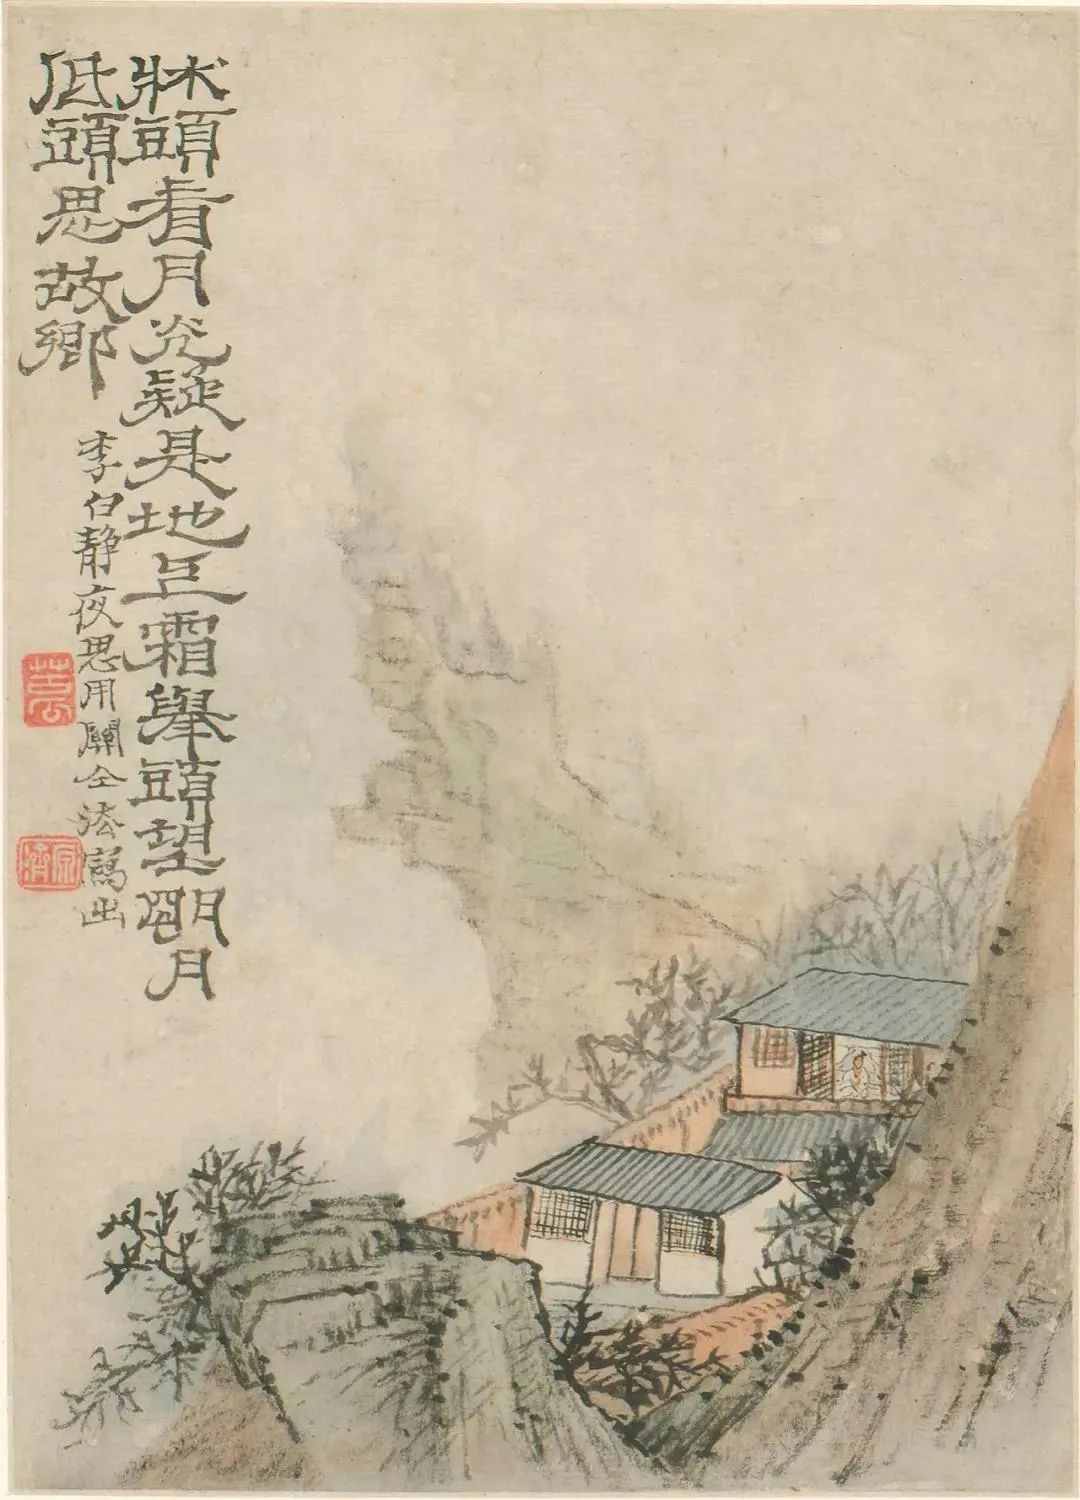 牀頭看月光疑是地上霜舉頭望朙月
低頭思故鄉
李白靜夜思用關仝法寫出
苦瓜
原濟